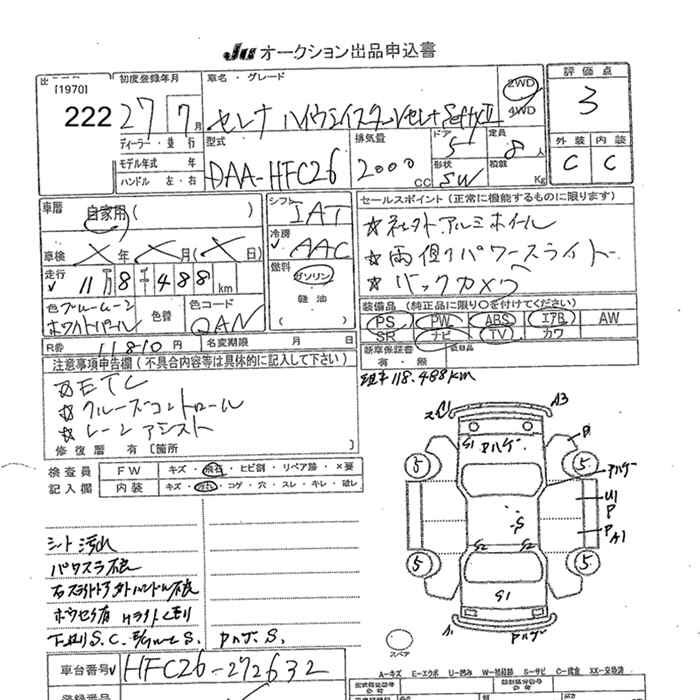 JU オークション出品申込書
[1970]
222
初度登録年月
27 7月
ディーラー・並行
モデル年式 年
ハンドル 左・右
車名・グレード
セレナ ハイウェイスターVセレナ SaftyⅡ
2WD
4WD
評価点
3
型式
DAA-HFC26
排気量
2000 CC
ドア
5
形状
SW
定員
8人
積載
Kg
外装 内装
C C
車歴
自家用( )
車検 × 年 × 月(× 日)
走行
11万8千488km
シフト
IAT
冷房
AAC
燃料
ガソリン
軽油
( )
色 ブルームーン
ホワイトパール
色替
色コード
QAN
R番 11810円
名変期限 月 日
セールスポイント(正常に機能するものに限ります)
☆社外アルミホイール
☆両側パワースライド
☆バックカメラ
装備品(純正品に限り○を付けてください)
PS PW ABS エアB AW
SR ナビ TV カワ
新車保証書
有・無
注意事項申告欄(不具合内容等は具体的に記入して下さい)
☆ETC
☆クルーズコントロール
☆レーンアシスト
修復歴 有〔箇所
検査員
記入欄
FW キズ・飛石・ヒビ割・リペア跡・×要
内装 キズ・汚れ・コゲ・穴・スレ・キレ・破レ
118,488km
A3
S1
アハゲ
P
アハゲ
U1
P
P
A1
S
S2 S2
S1
5 5
5 5
スペア
シート汚れ
パワスラ不良
右スライドドア外ハンドル不良
ホウセキ有 Hライトくモリ
下廻りS.C.
車台番号
HFC26-272632
登録番号
A-キズ E-エクボ U-凹み W-補修跡 S-サビ C-腐食 XX-交換済